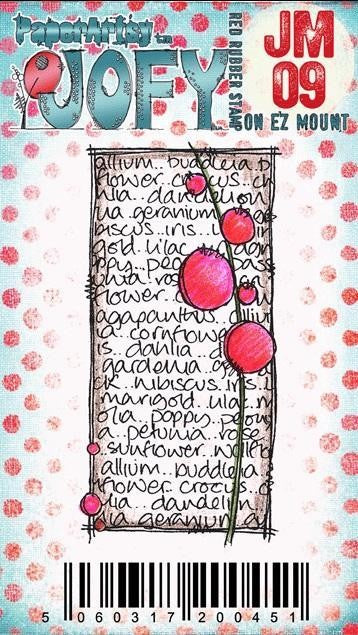 PaperArtsy™
JOFY
RED RUBBER STAMP
JM
09
ON EZ MOUNT
allium.. buddleia b
flower.. crocus.. ch
lia.. dandelion
ua geranium
iscus.. iris.. 
gold.. lilac..
ppy.. peo
nia.. rose
lower..
agapanthus.. allium
a.. cornflower
is.. dahlia.. d
gardenia
ck.. hibiscus.. ir
marigold.. lila
olia.. poppy.. peon
a.. petunia.. rose
.. sunflower.. wallfl
allium.. buddleia
flower.. crocus
lia.. dandelion
lia.. geranium
5 060317 200451